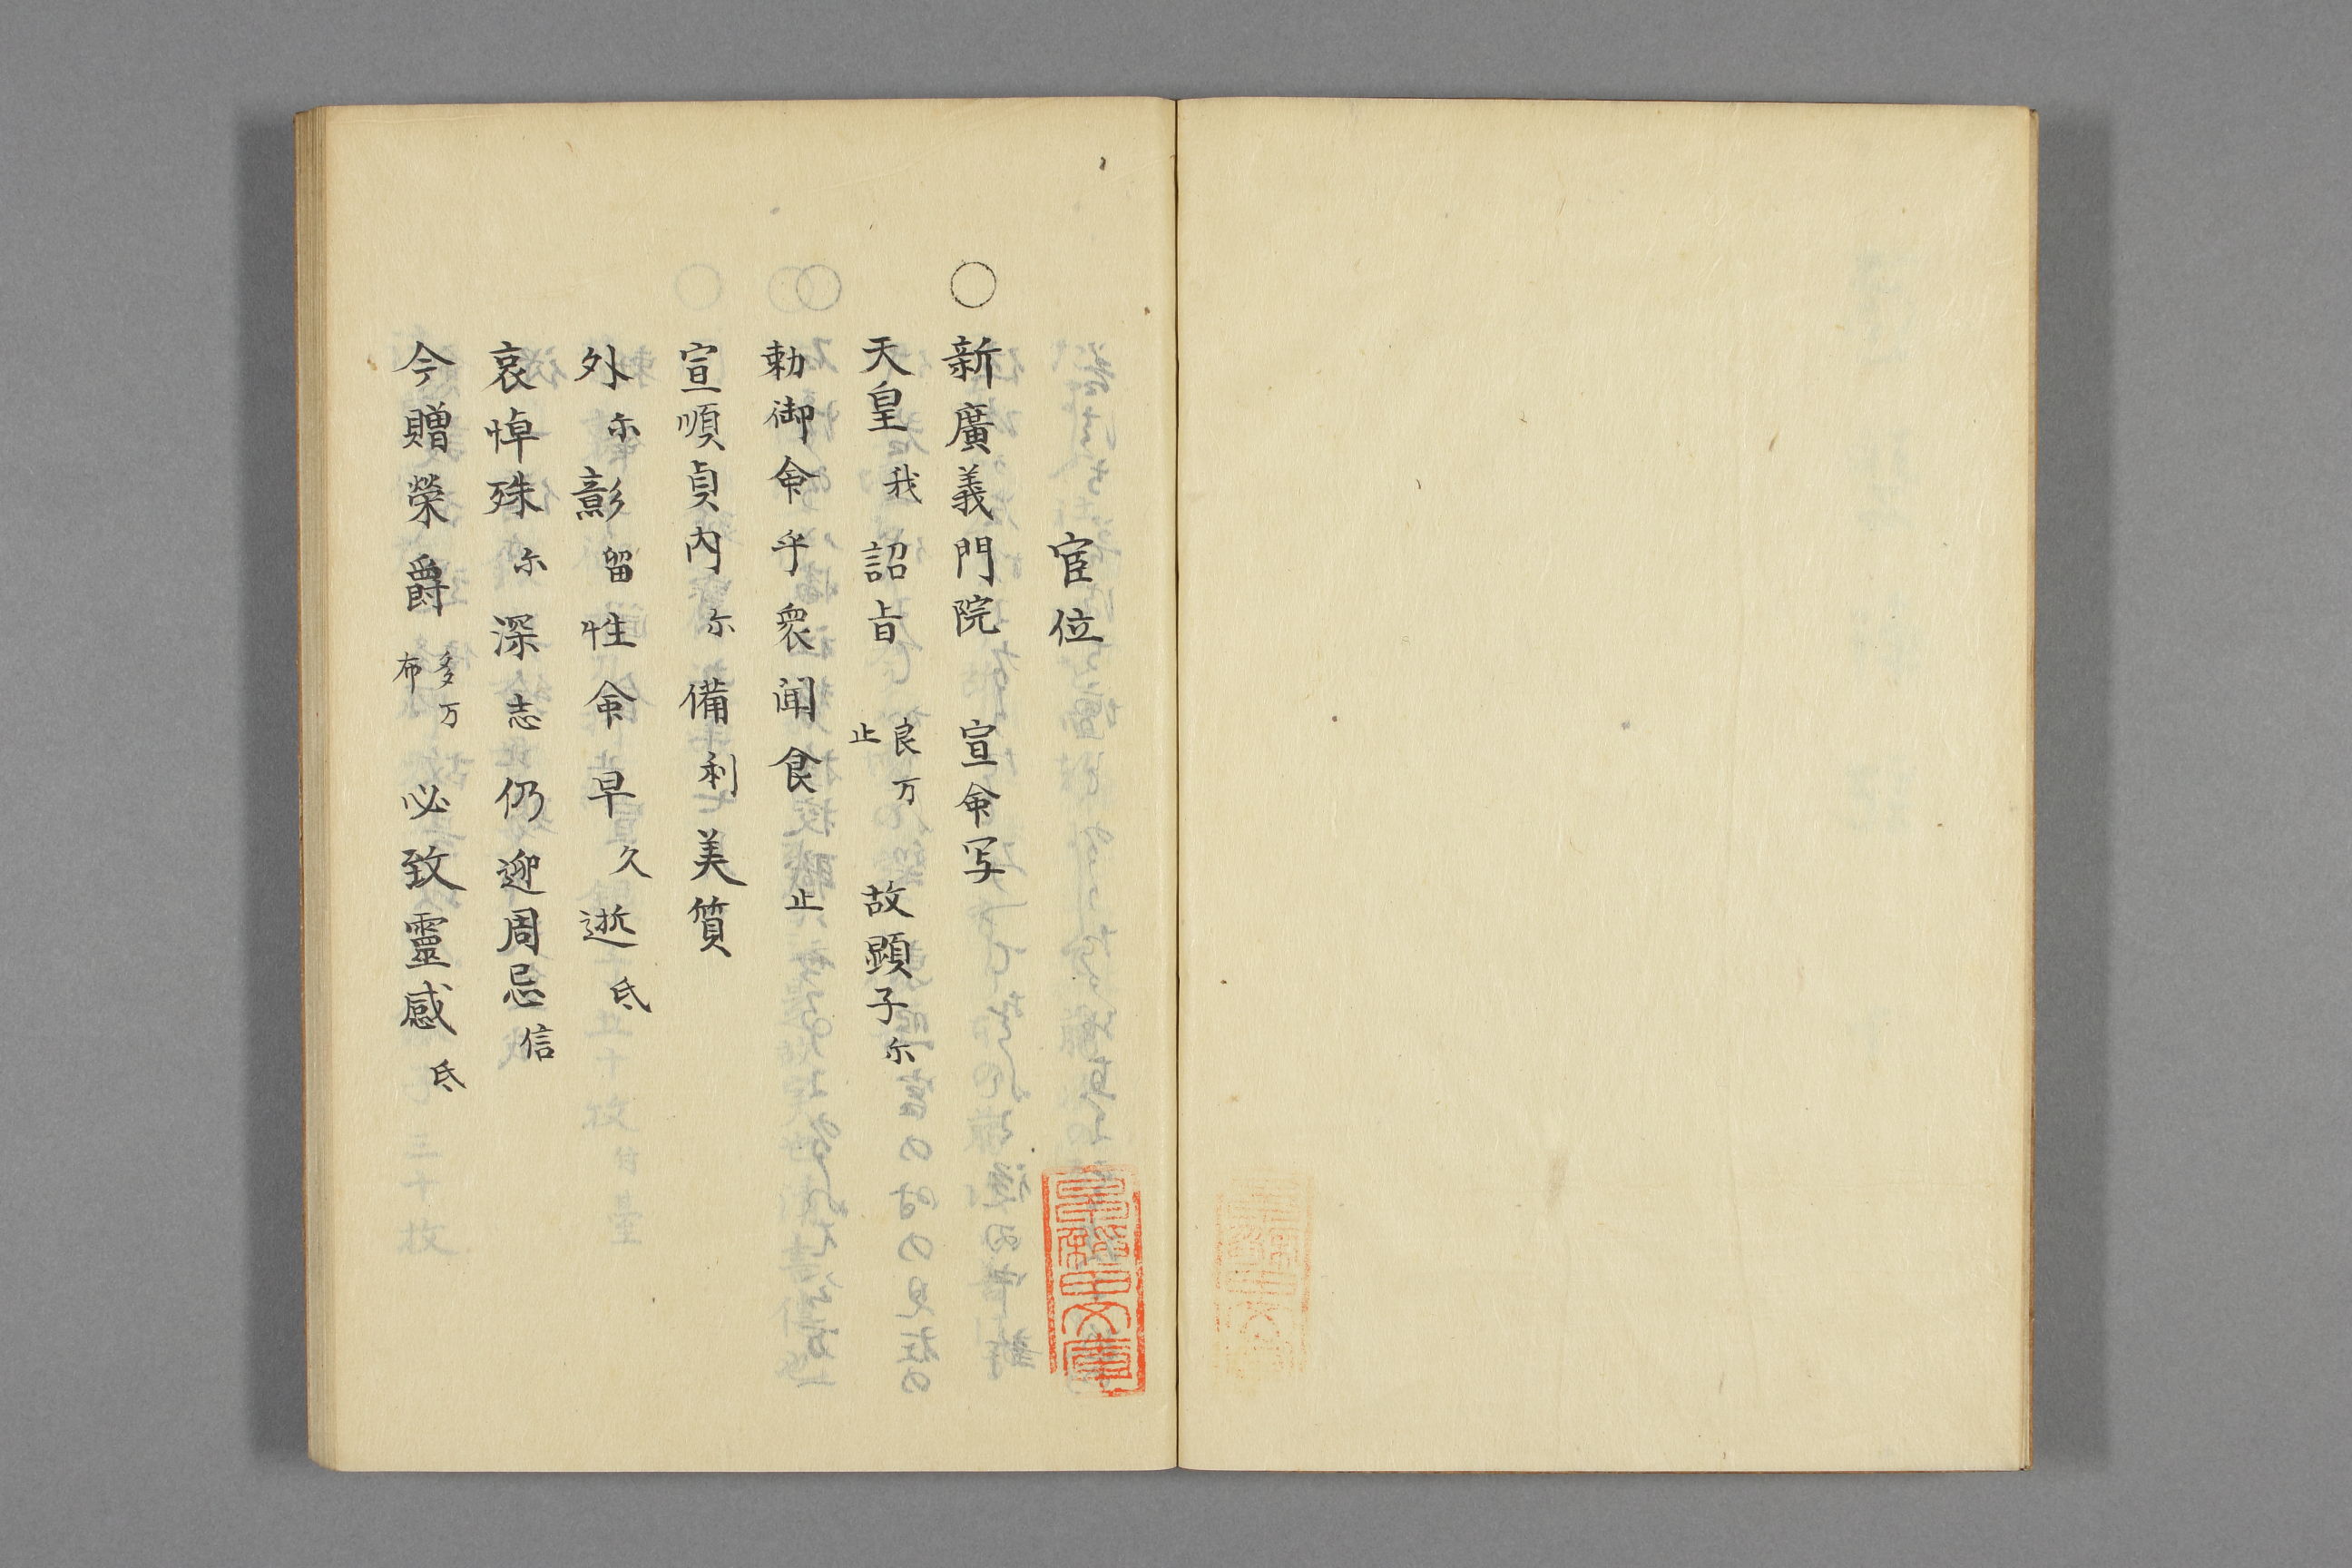 宦位
○新廣義門院　宣命写
天皇我詔旨良万止故顕子尓
勅御命乎衆聞食止
宣順貞内尓備利美質
外尓彰留性命早久逝氐
哀悼殊尓深志仍迎周忌信
今贈榮爵多万布必致靈感氐